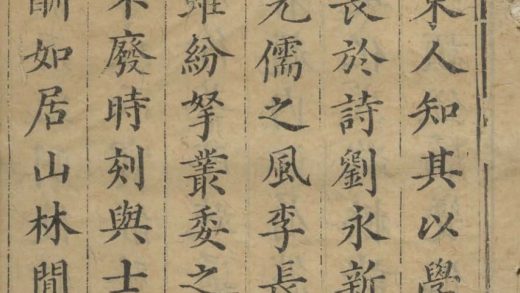 人知其以學
長於詩劉永新
儒之風李長
紛拏叢委之
廢時刻與士
如居山林間